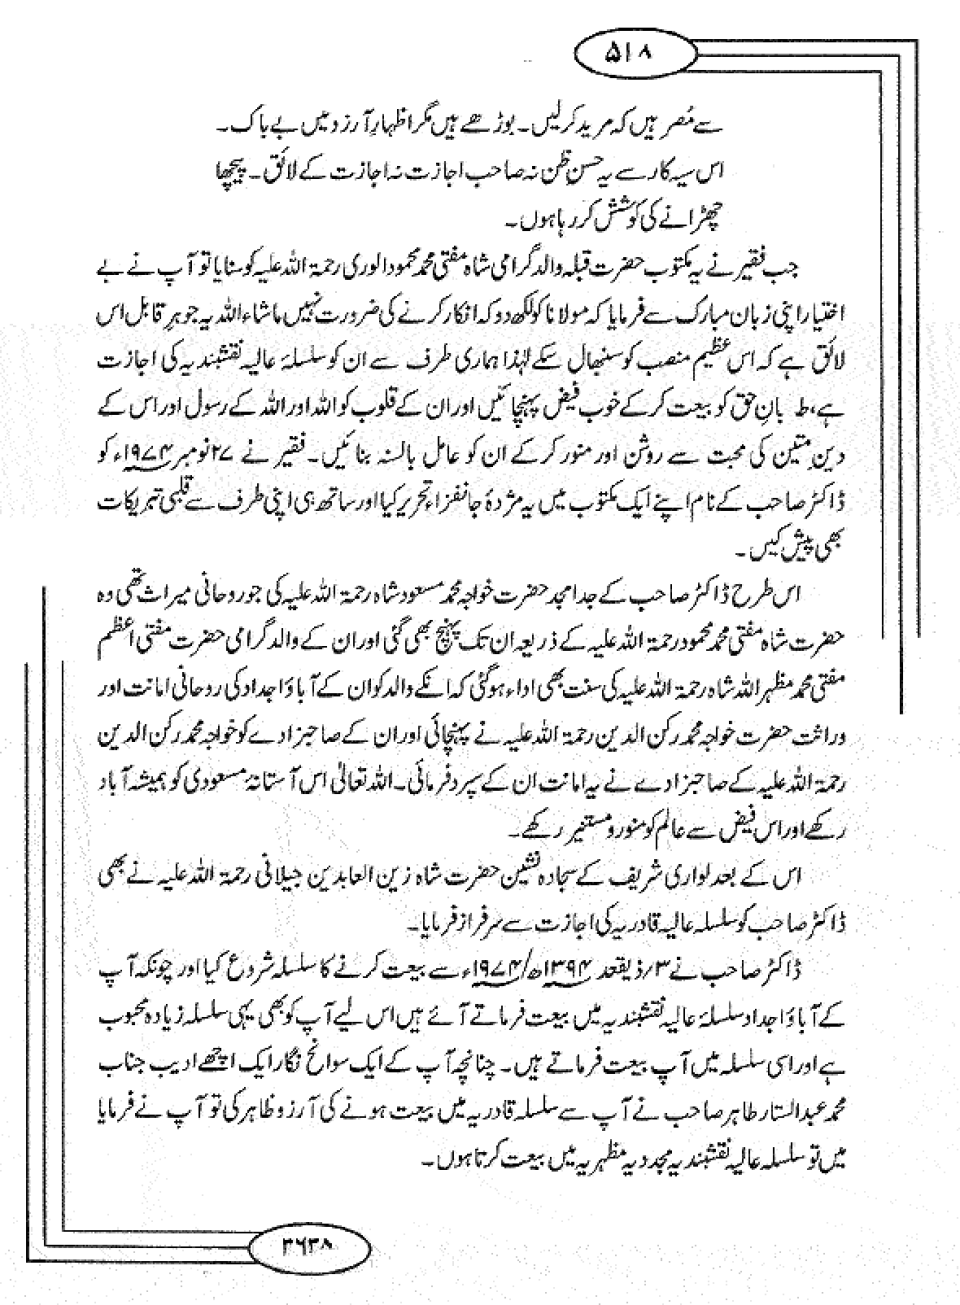 ۵۱۸
سے مُصر ہیں کہ مرید کر لیں۔ بوڑھے ہیں مگر اظہارِ آرزو میں بے باک۔
اس سیہ کار سے یہ حسنِ ظن نہ صاحب اجازت نہ اجازت کے لائق۔ پیچھا
چھڑانے کی کوشش کر رہا ہوں۔
جب فقیر نے یہ مکتوب حضرت قبلہ والد گرامی شاہ مفتی محمد محمود الوری رحمۃ اللہ علیہ کو سنایا تو آپ نے بے
اختیار اپنی زبان مبارک سے فرمایا کہ مولانا کو لکھ دو کہ انکار کرنے کی ضرورت نہیں ماشاء اللہ یہ جوہرِ قابل اس
لائق ہے کہ اس عظیم منصب کو سنبھال سکے لہٰذا ہماری طرف سے ان کو سلسلۂ عالیہ نقشبندیہ کی اجازت
ہے، ط بانِ حق کو بیعت کر کے خوب فیض پہنچائیں اور ان کے قلوب کو اللہ اور اللہ کے رسول اور اس کے
دینِ متین کی محبت سے روشن اور منور کر کے ان کو عامل بالسنہ بنائیں۔ فقیر نے ۲۷ نومبر ۱۹۷۴ء کو
ڈاکٹر صاحب کے نام اپنے ایک مکتوب میں یہ مژدۂ جانفزاء تحریر کیا اور ساتھ ہی اپنی طرف سے قلبی تبریکات
بھی پیش کیں۔
اس طرح ڈاکٹر صاحب کے جد امجد حضرت خواجہ محمد مسعود شاہ رحمۃ اللہ علیہ کی جو روحانی میراث تھی وہ
حضرت شاہ مفتی محمد محمود رحمۃ اللہ علیہ کے ذریعہ ان تک پہنچ بھی گئی اور ان کے والد گرامی حضرت مفتی اعظم
مفتی محمد مظہر اللہ شاہ رحمۃ اللہ علیہ کی سنت بھی اداء ہو گئی کہ انکے والد کو ان کے آباؤ اجداد کی روحانی امانت اور
وراثت حضرت خواجہ محمد رکن الدین رحمۃ اللہ علیہ نے پہنچائی اور ان کے صاحبزادے کو خواجہ محمد رکن الدین
رحمۃ اللہ علیہ کے صاحبزادے نے یہ امانت ان کے سپرد فرمائی۔ اللہ تعالیٰ اس آستانۂ مسعودی کو ہمیشہ آباد
رکھے اور اس فیض سے عالم کو منور و مستنیر رکھے۔
اس کے بعد لواری شریف کے سجادہ نشین حضرت شاہ زین العابدین جیلانی رحمۃ اللہ علیہ نے بھی
ڈاکٹر صاحب کو سلسلہ عالیہ قادریہ کی اجازت سے سرفراز فرمایا۔
ڈاکٹر صاحب نے ۳/ ذیقعد ۱۳۹۴ھ/۱۹۷۴ء سے بیعت کرنے کا سلسلہ شروع کیا اور چونکہ آپ
کے آباؤ اجداد سلسلۂ عالیہ نقشبندیہ میں بیعت فرماتے آئے ہیں اس لیے آپ کو بھی یہی سلسلہ زیادہ محبوب
ہے اور اسی سلسلہ میں آپ بیعت فرماتے ہیں۔ چنانچہ آپ کے ایک سوانح نگار ایک اچھے ادیب جناب
محمد عبدالستار طاہر صاحب نے آپ سے سلسلہ قادریہ میں بیعت ہونے کی آرزو ظاہر کی تو آپ نے فرمایا
میں تو سلسلہ عالیہ نقشبندیہ مجددیہ مظہریہ میں بیعت کرتا ہوں۔
۳۶۳۸